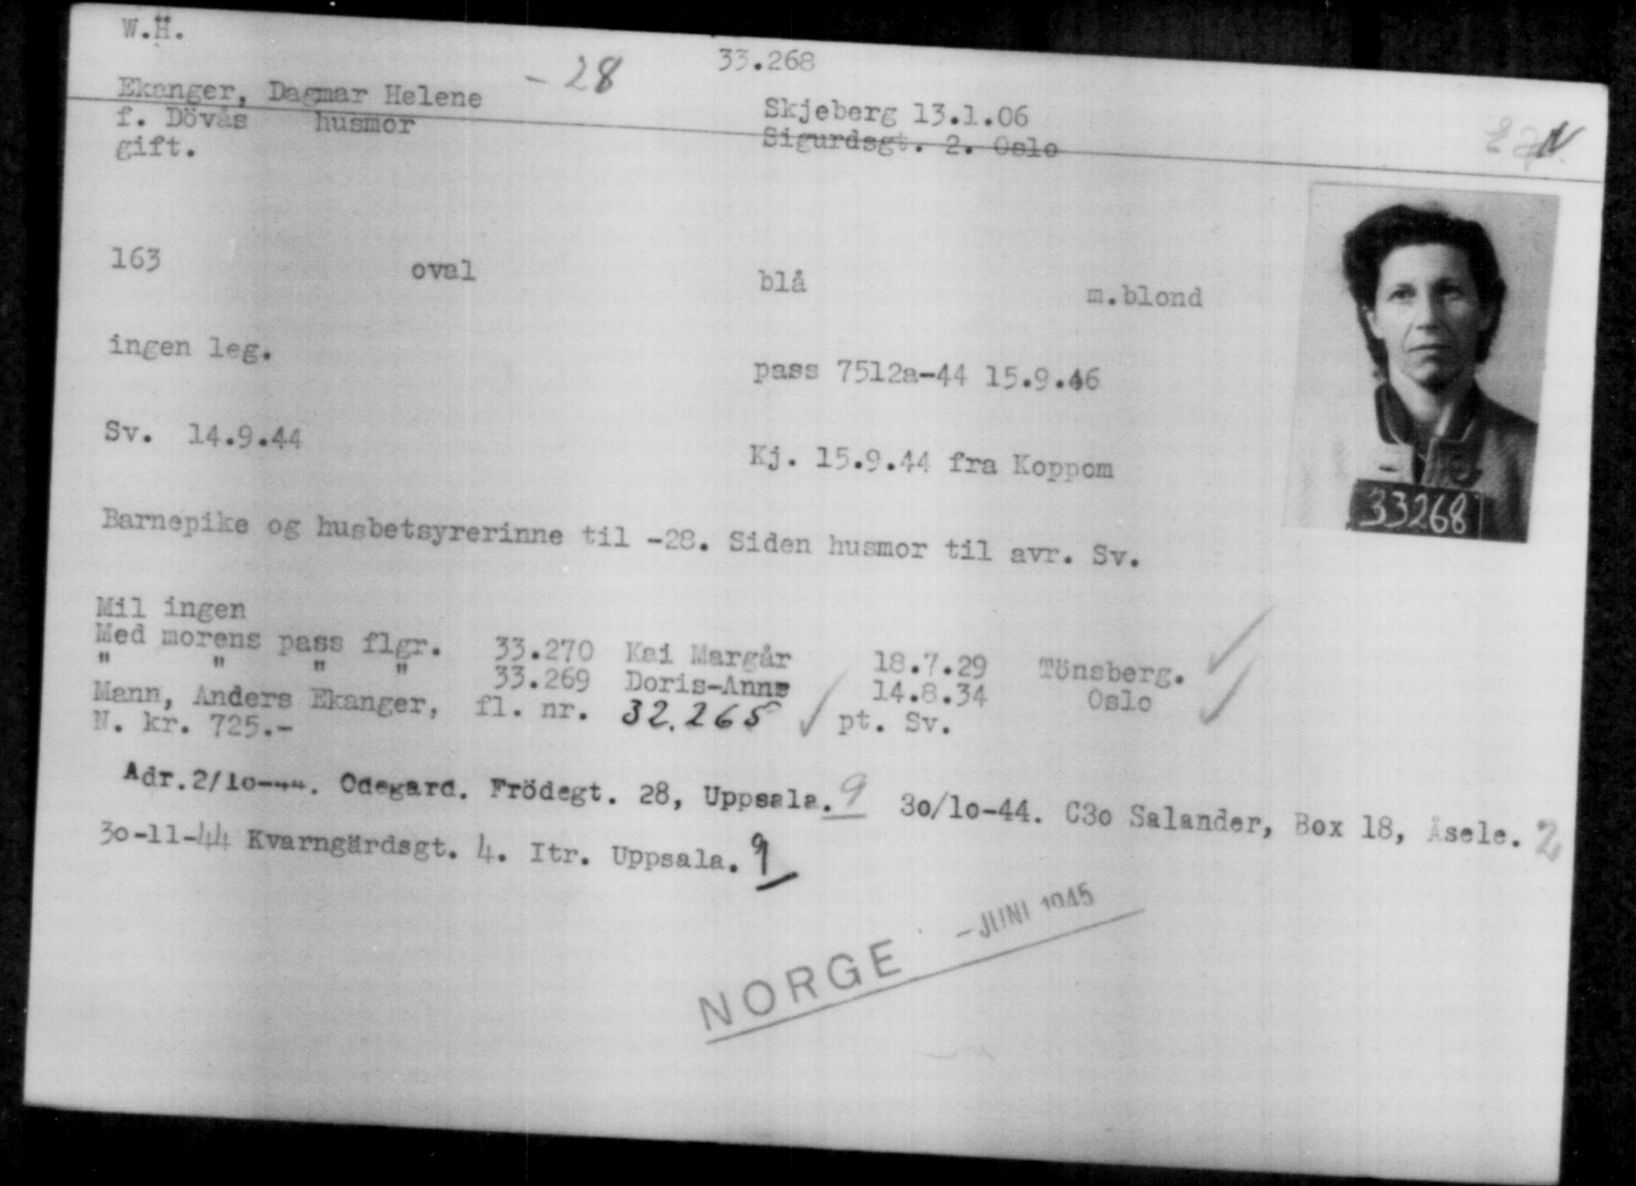 W.H.
33.268
Ekanger, Dagmar Helene - 28
Skjeberg 13.1.06
f. Dövås husmor
Sigurdsgt. 2. Oslo
gift.
163 oval blå m.blond
ingen leg.
pass 7512a-44 15.9.46
Sv. 14.9.44
Kj. 15.9.44 fra Koppom
33268
Barnepike og husbetsyrerinne til -28. Siden husmor til avr. Sv.
Mil ingen
Med morens pass flgr. 33.270 Kai Margår 18.7.29 Tönsberg.
" " " " 33.269 Doris-Anne 14.8.34 Oslo
Mann, Anders Ekanger, fl. nr. 32.265 pt. Sv.
N. kr. 725.-
Adr.2/10-44. Odegard. Frödegt. 28, Uppsala. 9 30/10-44. C3o Salander, Box 18, Åsele. 2
30-11-44 Kvarngärdsgt. 4. Itr. Uppsala. 9
NORGE - JUNI 1945